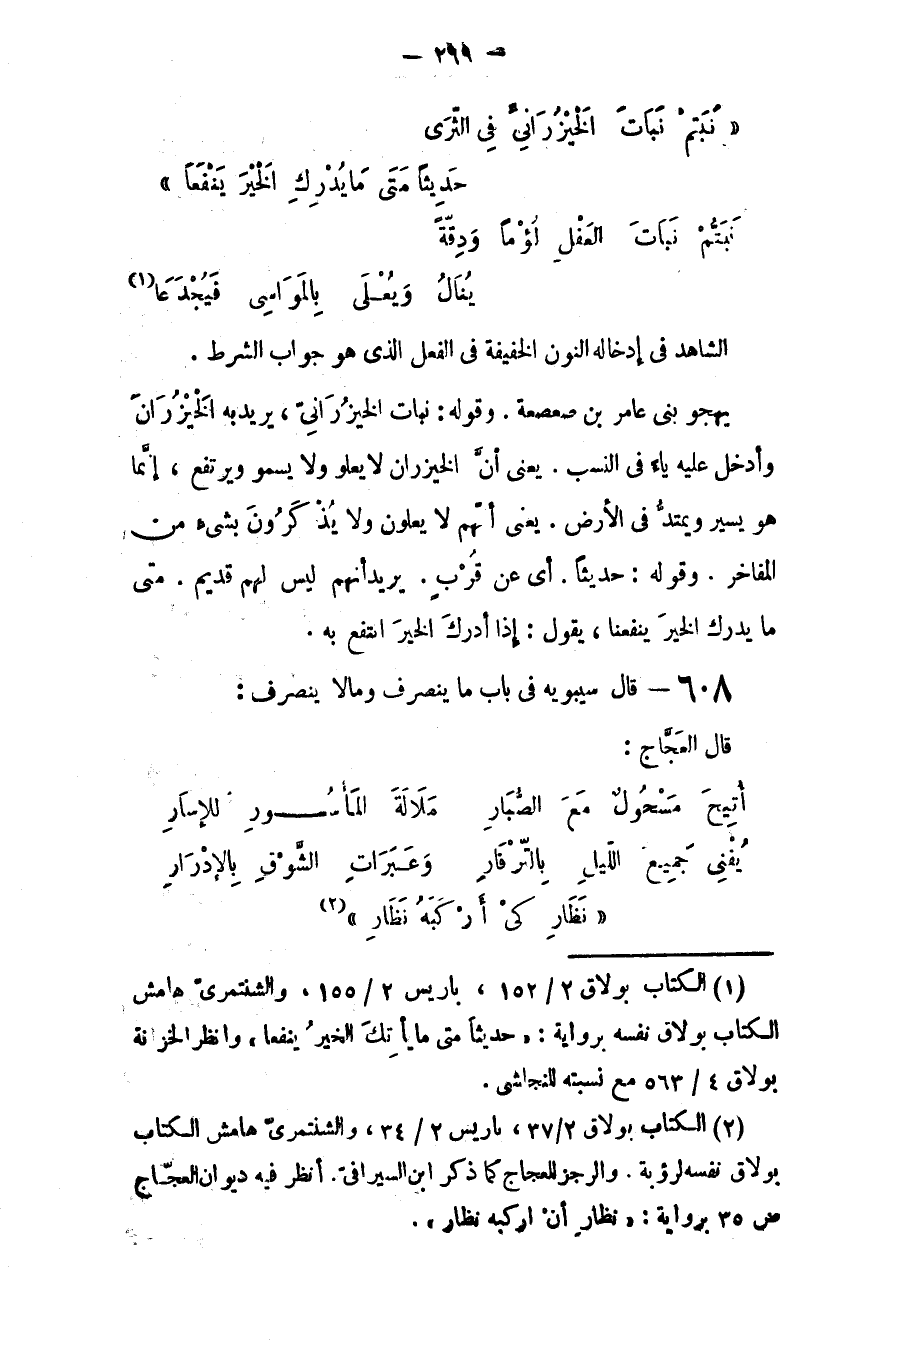 — ٢٩٩ —
« نَبَتُمْ نَبَاتَ الَخْيْزُرَانِيِّ فِى الثَّرَى
حَدِيثًا مَتَى مَا يُدْرِكِ الَخْيْرَ يَنْفَعَا »
نَبَتُّمْ نَبَاتَ العَفْلِ لُؤْمًا وَدِقَّةً
يُفَالُ وَيُعْلَى بِالَموَاسِى فَيُجْدَعَا (١)
الشاهد فى إدخاله النون الخفيفة فى الفعل الذى هو جواب الشرط .
يهجو بنى عامر بن صعصعة . وقوله : نبات الخيزُرَانِيّ ، يريد به الَخْيْزُرَانَ
وأدخل عليه ياء فى النسب . يعنى أنَّ الخيزران لا يعلو ولا يسمو ويرتفع ، إنَّما
هو يسير ويمتدُّ فى الأرض . يعنى أنّهم لا يعلون ولا يُذْكَرُونَ بشىء من
المفاخر . وقوله : حديثًا . أى عن قُرْبٍ . يريد أنهم ليس لهم قديم . متى
ما يدرك الخيرَ ينفعنا ، يقول : إذا أدركَ الخيرَ انتفع به .
٦٠٨ — قال سيبويه فى باب ما ينصرف ومالا ينصرف :
قال العَجَّاج :
أُتِيحَ مَسْحُولٌ مَعَ الصُّبَارِ مَلَالَةَ المَأسُــورِ للإسَارِ
يُفْنِى جَمِيعَ اللَّيلِ بِالتَّزْفَارِ وَعَبَرَاتِ الشَّوْقِ بِالإدْرَارِ
« نَظَارِ كىْ أَرْكَبَهُ نَظَارِ » (٢)
(١) الكتاب بولاق ٢ / ١٥٢ ، باريس ٢ / ١٥٥ ، والشنتمرىّ هامش
الكتاب بولاق نفسه برواية : « حديثاً متى ما يأتِكَ الخيرُ ينفعا » وانظر الخزانة
بولاق ٤ / ٥٦٣ مع نسبته للنجاشى .
(٢) الكتاب بولاق ٣٧/٢ ، باريس ٢ / ٣٤ ، والشنتمرىّ هامش الكتاب
بولاق نفسه لرؤبة . والرجز للعجاج كما ذكر ابن السيرافىّ . أنظر فيه ديوان العجّاج
ص ٣٥ برواية : « نظارِ أنْ اركبه نظار » .